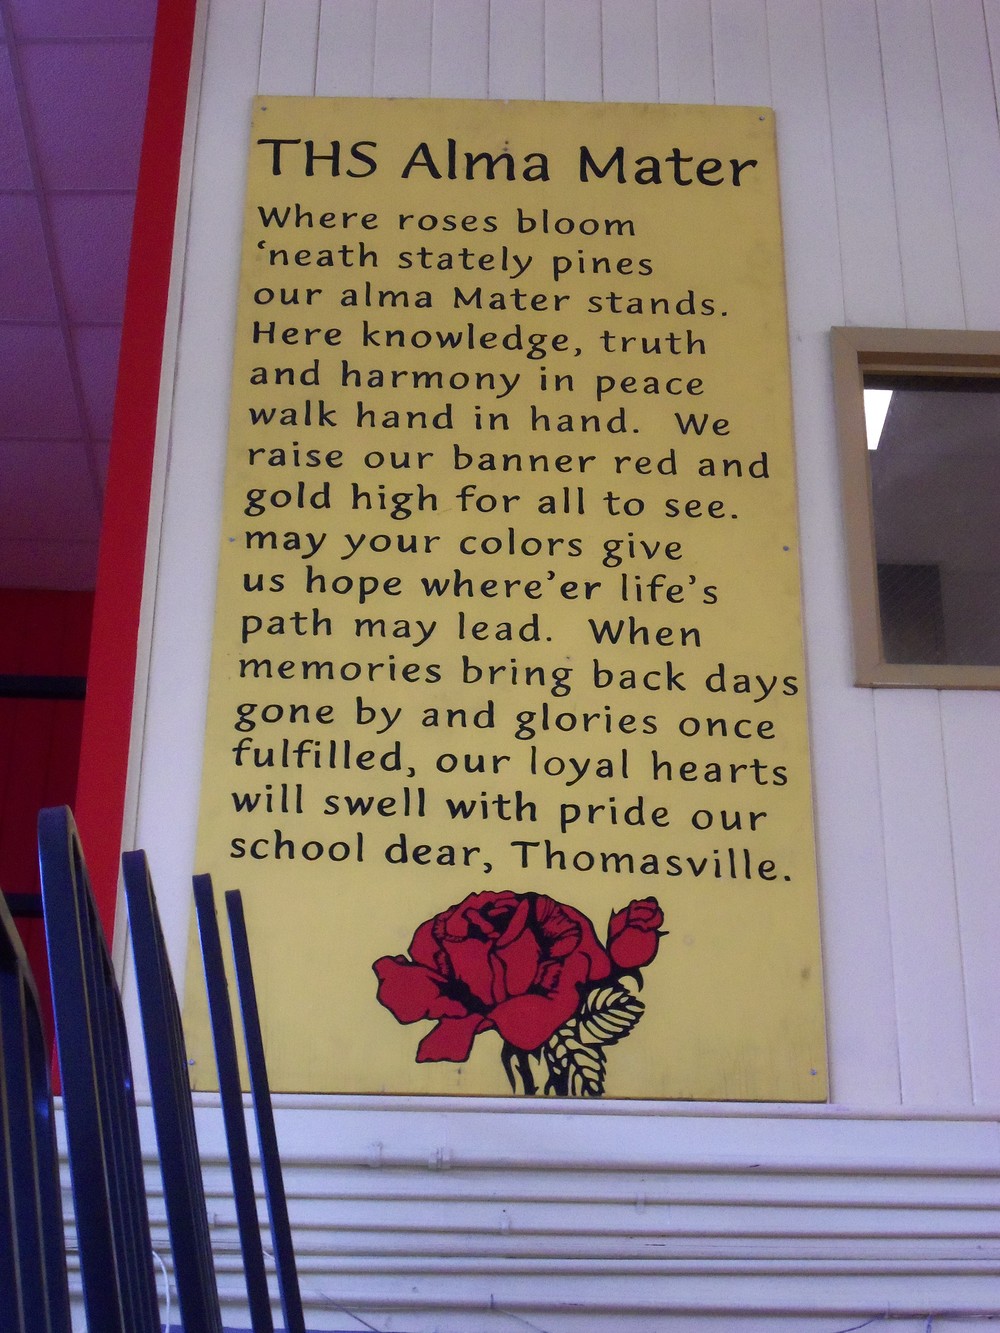 THS Alma Mater
Where roses bloom
‘neath stately pines
our alma Mater stands.
Here knowledge, truth
and harmony in peace
walk hand in hand. We
raise our banner red and
gold high for all to see.
may your colors give
us hope where’er life’s
path may lead. When
memories bring back days
gone by and glories once
fulfilled, our loyal hearts
will swell with pride our
school dear, Thomasville.